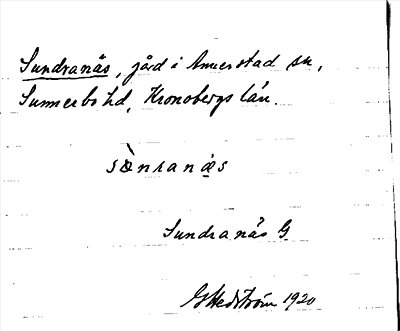 Sundranäs, gård i Annerstad sn,
Sunnerbo hd, Kronobergs län.
Sundranäs G
GHedström 1920